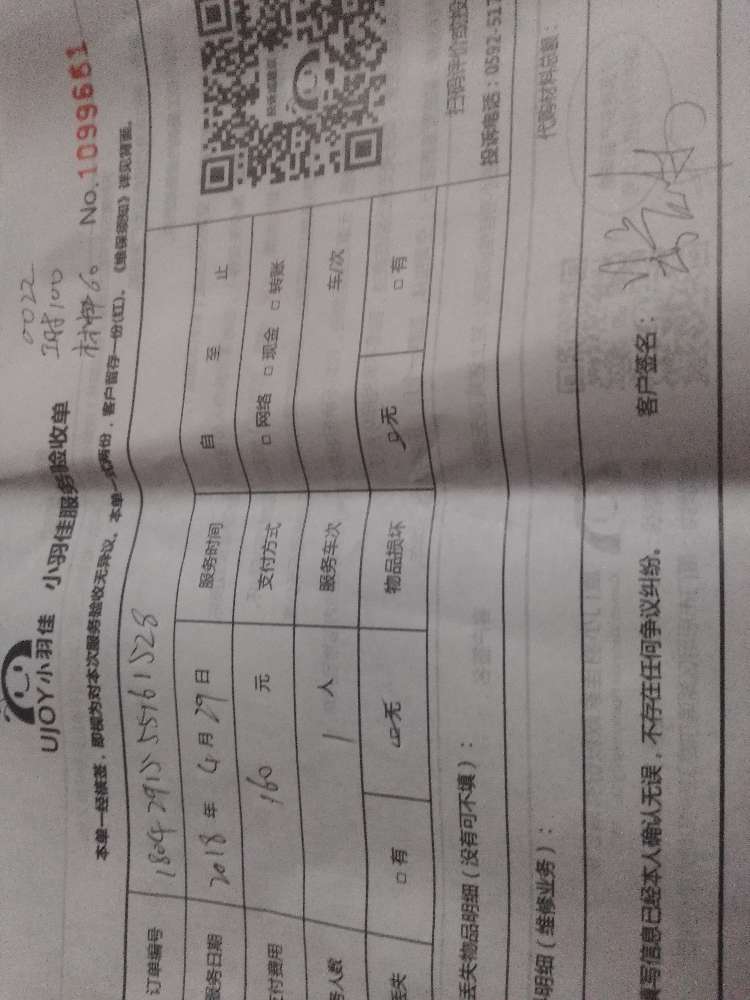 UJOY小羽佳 小羽佳服务验收单
0022
工时100
材料60
No.1099661
本单一经核签，即视为对本次服务验收无异议。本单一式两份，客户留存一份(红)。《维保须知》详见背面。
订单编号 18042915 55761528
服务日期 2018 年 4 月 29 日 服务时间 自 至 止
付费用 160 元 支付方式 □ 网络 □ 现金 □ 转账
人数 1 人 服务车次 车/次
丢失 □ 有 ☑ 无 物品损坏 ☑ 无 □ 有
投诉或建议
扫码评价或投
丢失物品明细（没有可不填）：
投诉电话：0592-517
明细（维修业务）：
代购材料总额：
填写信息已经本人确认无误，不存在任何争议纠纷。
客户签名：